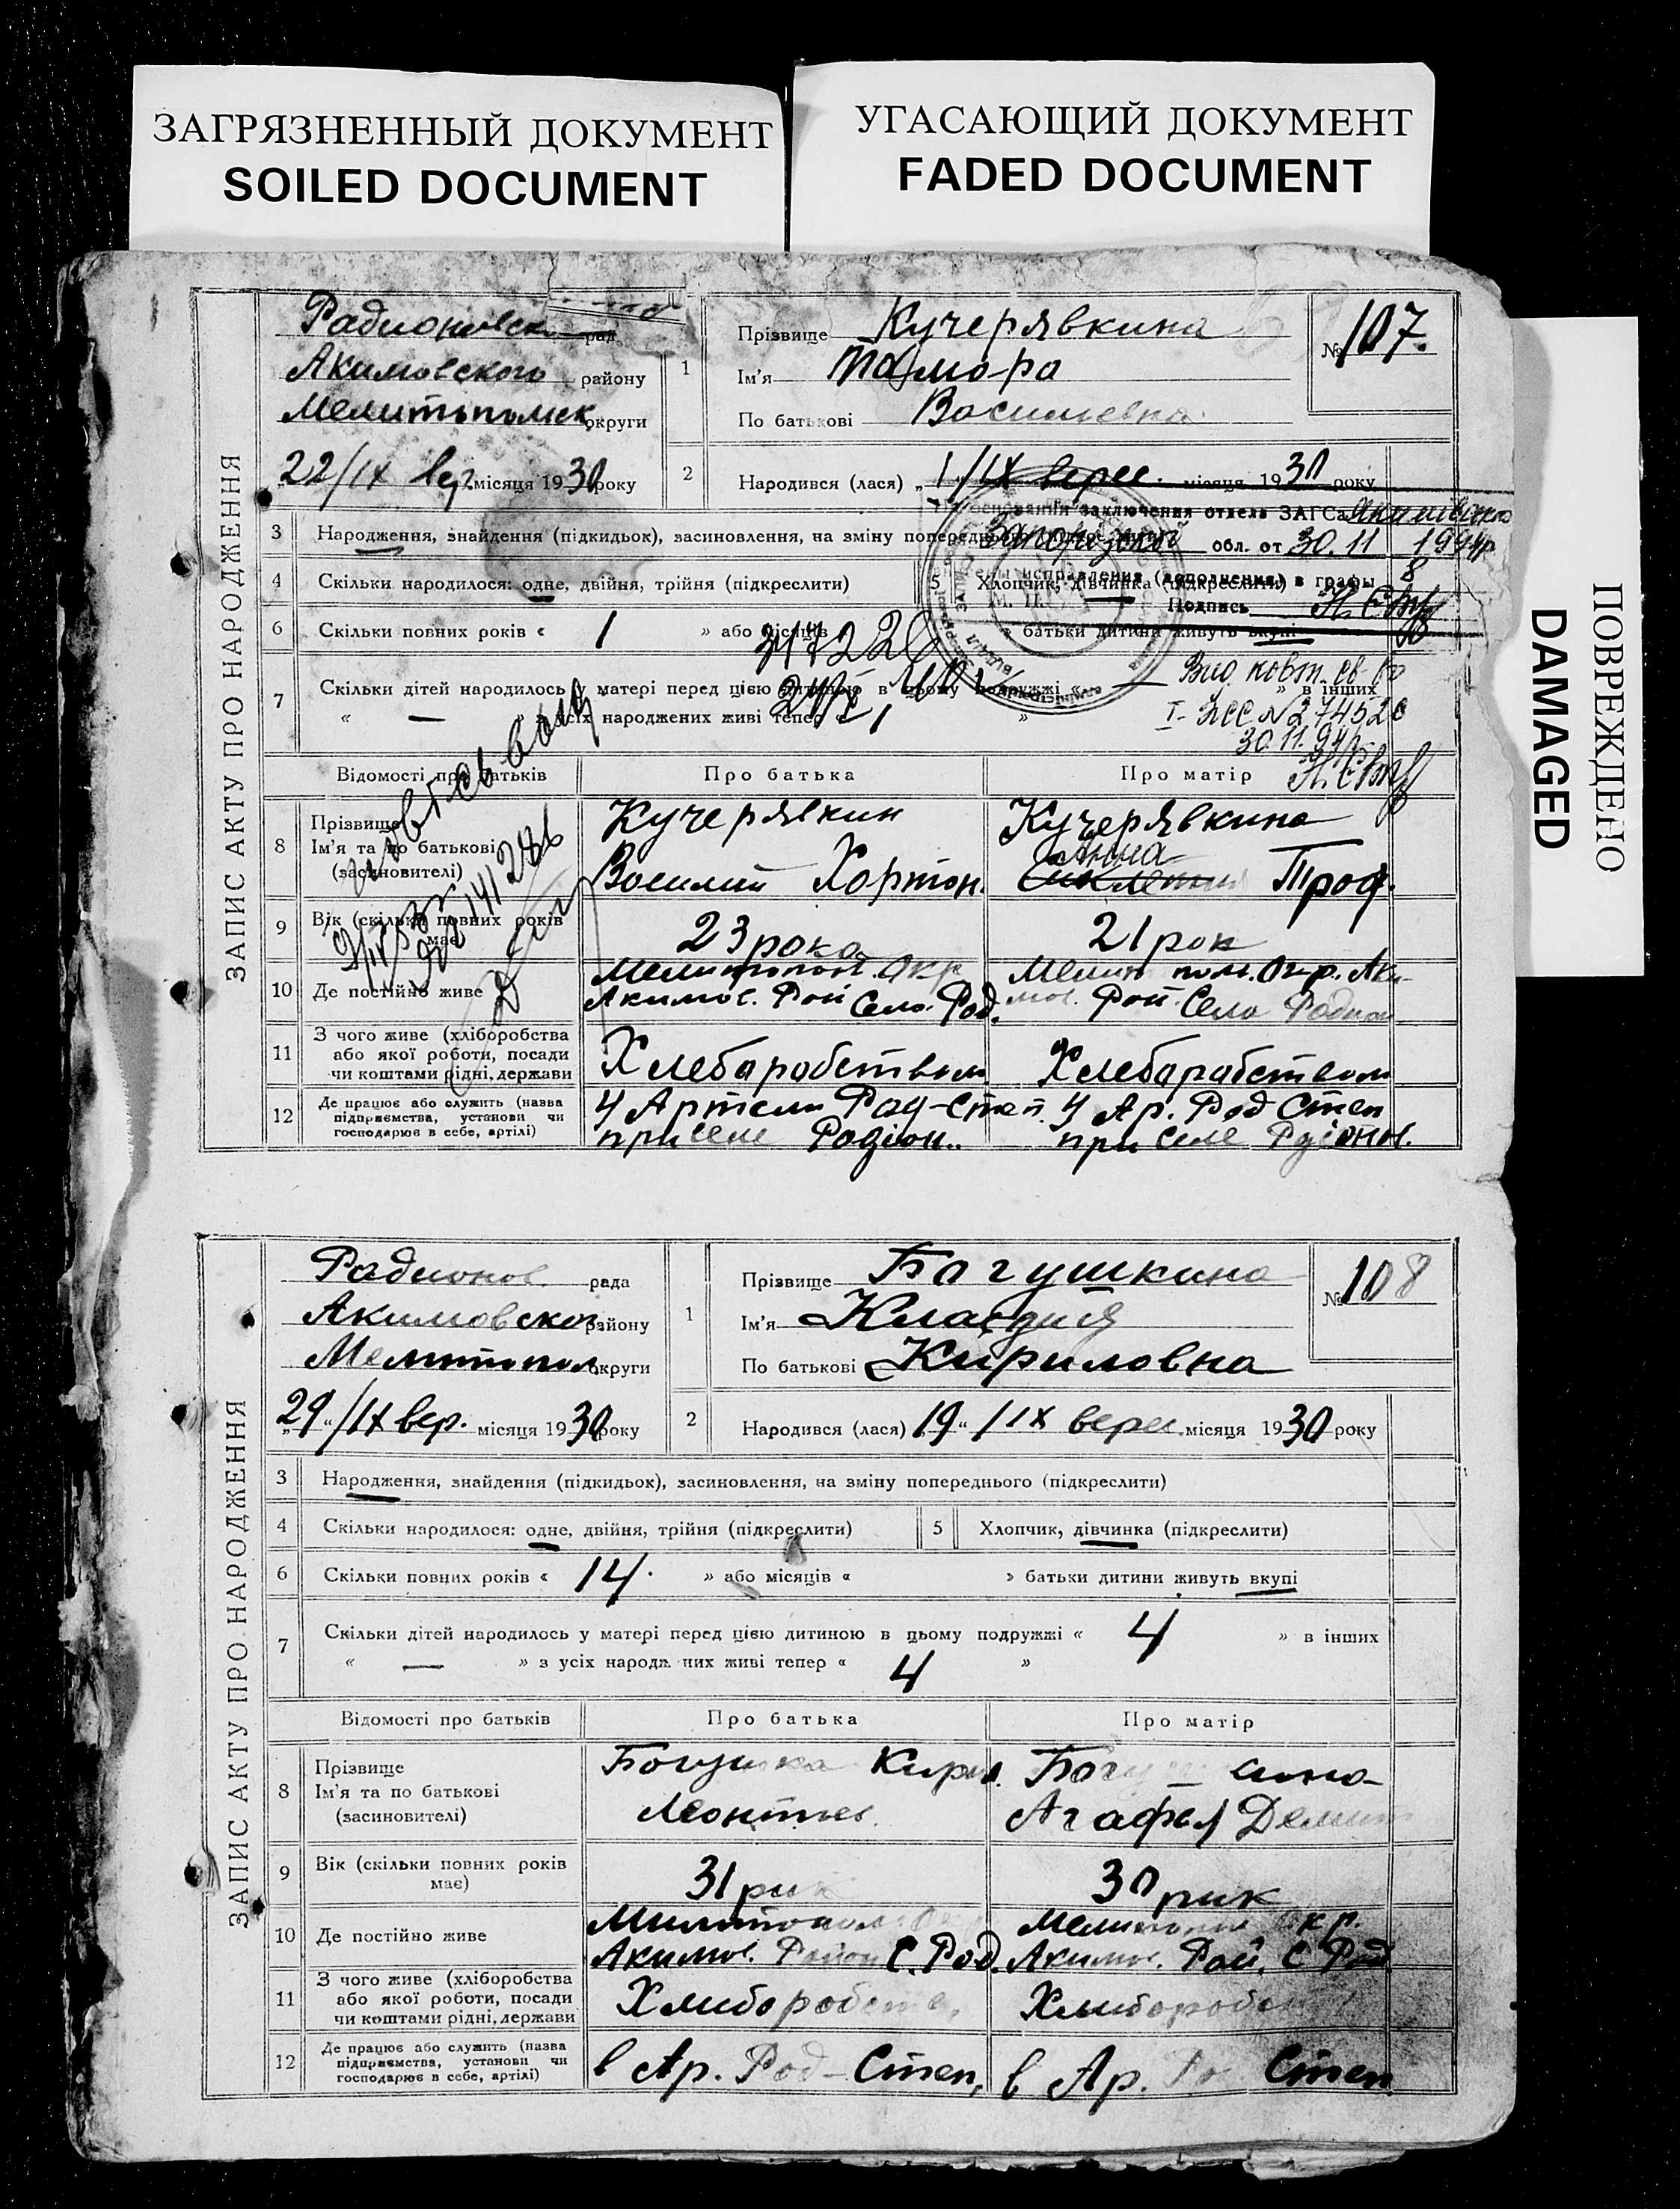 ЗАГРЯЗНЕННЫЙ ДОКУМЕНТ
SOILED DOCUMENT
УГАСАЮЩИЙ ДОКУМЕНТ
FADED DOCUMENT
ПОВРЕЖДЕНО
DAMAGED
ЗАПИС АКТУ ПРО НАРОДЖЕННЯ
Радионовск рад
Акимовского району
Мелитопольск округи
22/IX вер. місяця 1930 року
1 Прізвище Кучерявкина
Ім'я Тамара
По батькові Васильевна
№ 107.
2 Народився (лася) „1/IX верес. місяця 1930 року
основании заключения отдела ЗАГСа
обл. от 30.11 1994р
исправления (дополнения) в графы 8
Подпись
М. П.
3 Народження, знайдення (підкидьок), засиновлення, на зміну попереднього
4 Скільки народилося: одне, двійня, трійня (підкреслити)
5 Хлопчик, дівчинка (підкреслити)
6 Скільки повних років « 1 » або місяців » батьки дитини живуть вкупі
7 Скільки дітей народилось у матері перед цією дитиною в цьому подружжі « — » в інших
« — » з усіх народжених живі тепер « »
Вид. повт. св-во
I- №274520
30.11.94р.
Відомості про батьків Про батька Про матір
8 Прізвище
Ім'я та по батькові
(засиновителі)
Кучерявкин
Василий Харитон.
Кучерявкина
Анна
Троф.
9 Вік (скільки повних років
має)
23 рока
21 рок
10 Де постійно живе
Мелитопол. Окр
Акимов. Рай Село. Рад.
Мелитопол. Окр. Аки-
мов. Рай. Село Радион
11 З чого живе (хліборобства
або якої роботи, посади
чи коштами рідні, держави
Хлебаробством
Хлебаробством
12 Де працює або служить (назва
підприємства, установи чи
господарює в себе, артілі)
У Артели Рад-Степ.
при селе Радіон..
У Ар. Рад Степ
при селе Радіонов.
ЗАПИС АКТУ ПРО НАРОДЖЕННЯ
Радионов. рада
Акимовског району
Мелитопол. округи
„29“/IX вер. місяця 1930 року
1 Прізвище Богушкина
Ім'я Клавдия
По батькові Кириловна
№ 108
2 Народився (лася) 19“/IX верес. місяця 1930 року
3 Народження, знайдення (підкидьок), засиновлення, на зміну попереднього (підкреслити)
4 Скільки народилося: одне, двійня, трійня (підкреслити)
5 Хлопчик, дівчинка (підкреслити)
6 Скільки повних років « 14. » або місяців « » батьки дитини живуть вкупі
7 Скільки дітей народилось у матері перед цією дитиною в цьому подружжі « 4 » в інших
« — » з усіх народж них живі тепер « 4 »
Відомості про батьків Про батька Про матір
8 Прізвище
Ім'я та по батькові
(засиновителі)
Богушка Кирил.
Леонтьев.
Агафья Демит
9 Вік (скільки повних років
має)
31 рик
30 рик
10 Де постійно живе
Милитопол. Окр
Акимов. Район С. Рад.
Мелитопол Окр.
Акимов. Рай. С Рад
11 З чого живе (хліборобства
або якої роботи, посади
чи коштами рідні, держави
Хлиборобств.
Хлиборобст
12 Де працює або служить (назва
підприємства, установи чи
господарює в себе, артілі)
в Ар. Рад-Степ,
в Ар. Рад Степ.